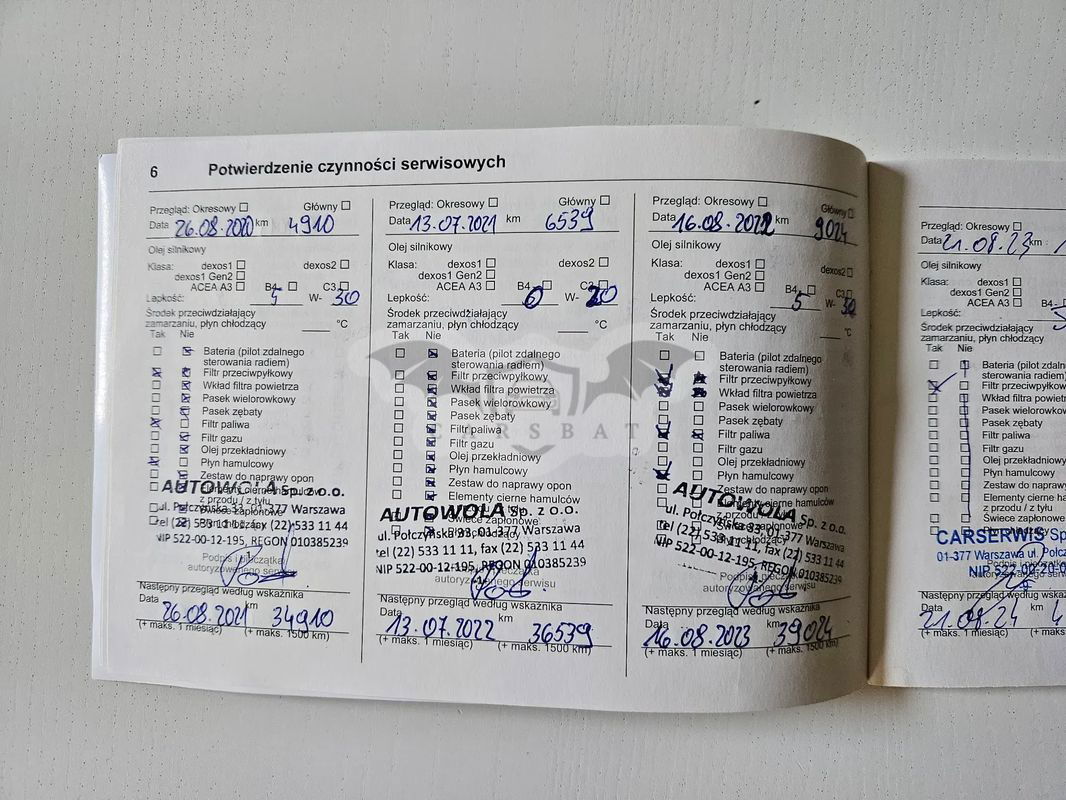 6 Potwierdzenie czynności serwisowych
Przegląd: Okresowy Główny
Data 26.08.2020 km 4910
Olej silnikowy
Klasa: dexos1
dexos1 Gen2
ACEA A3 B4 C3
Lepkość: 5 W- 30
Środek przeciwdziałający
zamarzaniu, płyn chłodzący °C
Tak Nie
Bateria (pilot zdalnego
sterowania radiem)
Filtr przeciwpyłkowy
Wkład filtra powietrza
Pasek wielorowkowy
Pasek zębaty
Filtr paliwa
Filtr gazu
Olej przekładniowy
Płyn hamulcowy
Zestaw do naprawy opon
Elementy cierne hamulców
z przodu / z tyłu
Świece zapłonowe
AUTOWOLA Sp. z o.o.
ul. Połczyńska 33, 01-377 Warszawa
tel (22) 533 11 11, fax (22) 533 11 44
NIP 522-00-12-195, REGON 010385239
Podpis i pieczątka
autoryzowanego serwisu
Następny przegląd według wskaźnika
Data 26.08.2021 km 34910
(+ maks. 1 miesiąc) (+ maks. 1500 km)
Przegląd: Okresowy Główny
Data 13.07.2021 km 6539
Olej silnikowy
Klasa: dexos1 dexos2
dexos1 Gen2
ACEA A3 B4 C3
Lepkość: 0 W- 20
Środek przeciwdziałający
zamarzaniu, płyn chłodzący °C
Tak Nie
Bateria (pilot zdalnego
sterowania radiem)
Filtr przeciwpyłkowy
Wkład filtra powietrza
Pasek wielorowkowy
Pasek zębaty
Filtr paliwa
Filtr gazu
Olej przekładniowy
Płyn hamulcowy
Zestaw do naprawy opon
Elementy cierne hamulców
Świece zapłonowe
AUTOWOLA Sp. z o.o.
ul. Połczyńska 33, 01-377 Warszawa
tel (22) 533 11 11, fax (22) 533 11 44
NIP 522-00-12-195, REGON 010385239
autoryzowanego serwisu
Następny przegląd według wskaźnika
Data 13.07.2022 km 36539
(+ maks. 1 miesiąc) (+ maks. 1500 km)
Przegląd: Okresowy Główny
Data 16.08.2022 km 9024
Olej silnikowy
Klasa: dexos1 dexos2
dexos1 Gen2
ACEA A3 B4 C3
Lepkość: 5 W- 30
Środek przeciwdziałający
zamarzaniu, płyn chłodzący °C
Tak Nie
Bateria (pilot zdalnego
sterowania radiem)
Filtr przeciwpyłkowy
Wkład filtra powietrza
Pasek wielorowkowy
Pasek zębaty
Filtr paliwa
Filtr gazu
Olej przekładniowy
Płyn hamulcowy
Zestaw do naprawy opon
AUTOWOLA Sp. z o.o.
ul. Połczyńska 33, 01-377 Warszawa
tel (22) 533 11 11, fax (22) 533 11 44
NIP 522-00-12-195, REGON 010385239
Podpis i pieczątka
autoryzowanego serwisu
Następny przegląd według wskaźnika
Data 16.08.2023 km 39024
(+ maks. 1 miesiąc) (+ maks. 1500 km)
Przegląd: Okresowy
Data 21.08.23 km
Olej silnikowy
Klasa: dexos1
dexos1 Gen2
ACEA A3 B4
Lepkość: 5
Środek przeciwdziałający
zamarzaniu, płyn chłodzący
Tak Nie
Bateria (pilot zdalnego
sterowania radiem)
Filtr przeciwpyłkowy
Wkład filtra powietrza
Pasek wielorowkowy
Pasek zębaty
Filtr paliwa
Filtr gazu
Olej przekładniowy
Płyn hamulcowy
Zestaw do naprawy opon
Elementy cierne ha
z przodu / z tyłu
Świece zapłonowe
CARSERWIS Sp
01-377 Warszawa ul. Połcz
NIP 522-00-20-0
Podpis i pieczątka
autoryzowanego serwisu
Następny przegląd według wskaźnika
Data 21.08.24 km 4
(+ maks. 1 miesiąc) (+ maks. 1
CARSBAT